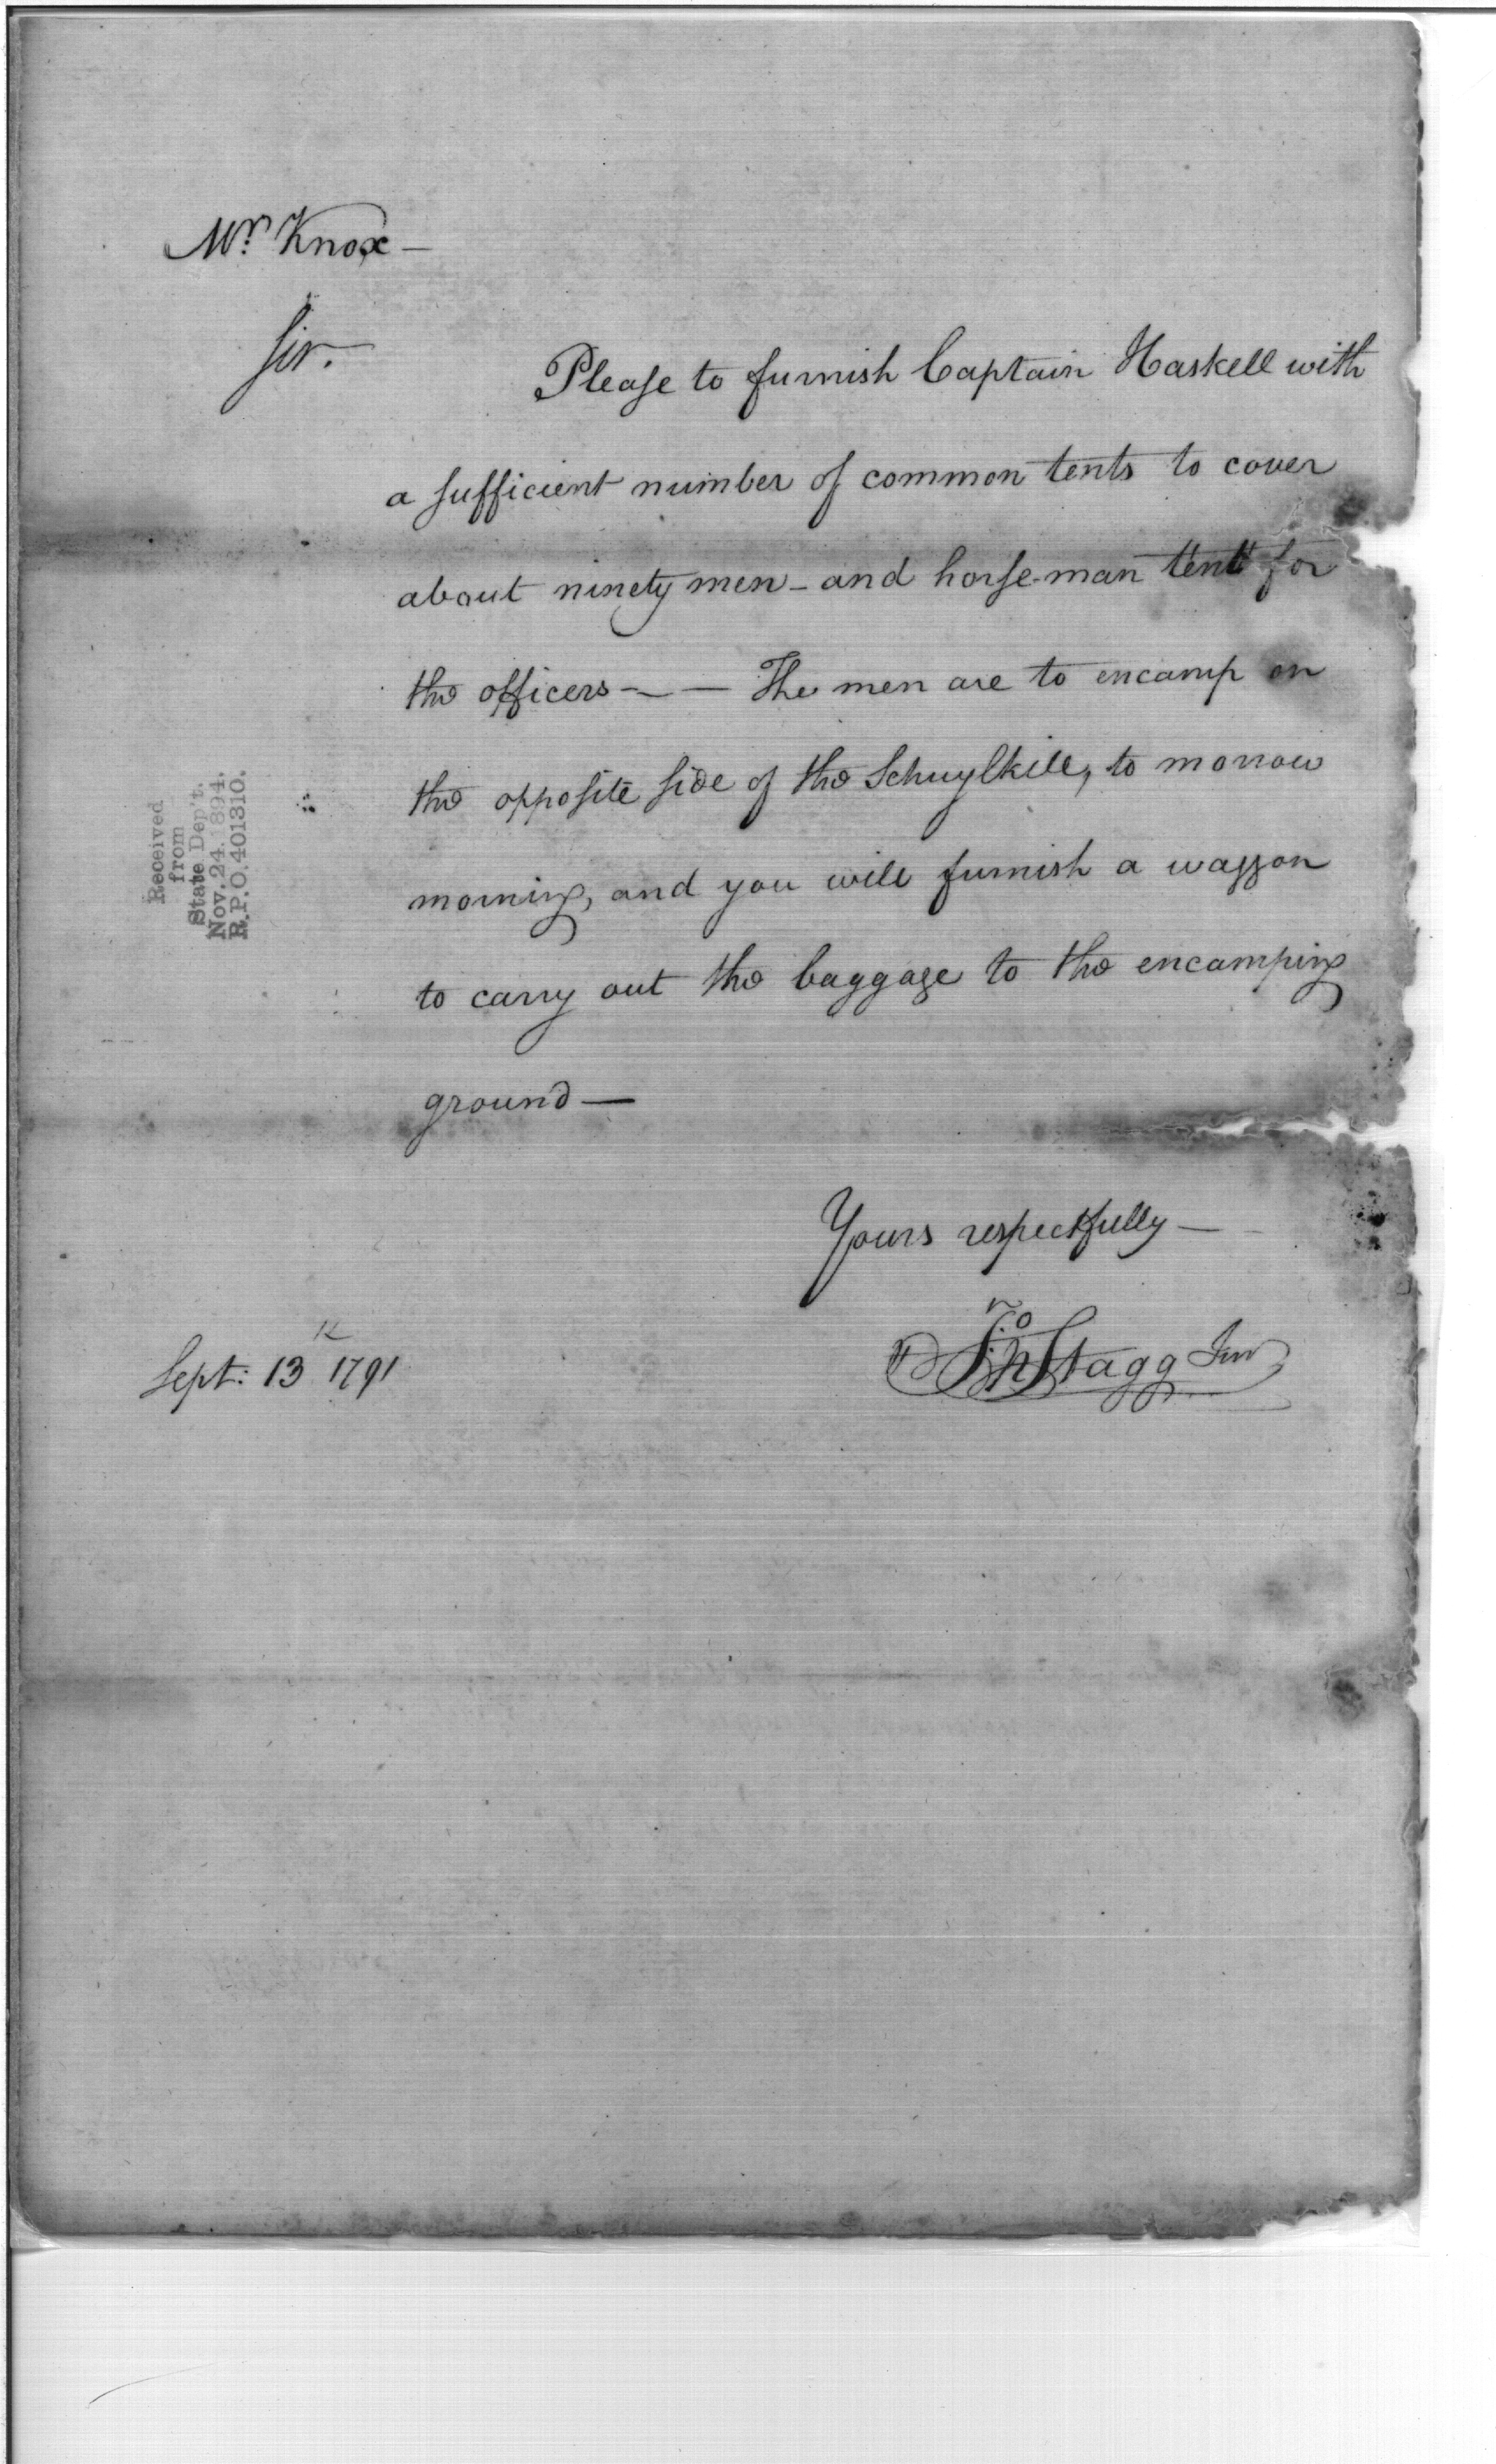 Mr. Knox —
Sir.
Please to furnish Captain Haskell with
a sufficient number of common tents to cover
about ninety men – and horse-man tent for
the officers – — The men are to encamp on
the opposite side of the Schuylkill, to morrow
morning, and you will furnish a waggon
to carry out the baggage to the encamping
ground —
Yours respectfully —
Jno Stagg Junr
Sept: 13 1791
Received
from
State Dep't.
Nov. 24. 1894.
R.P.O. 401310.